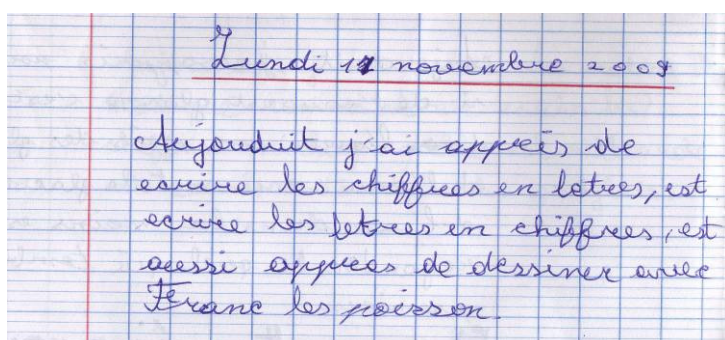 Lundi 11 novembre 2009
Aujouduit j'ai appris de
ecrire les chiffres en letres, est
ecrire les letres en chiffres, est
aussi appres de dessiner avec
Franc les poisson.